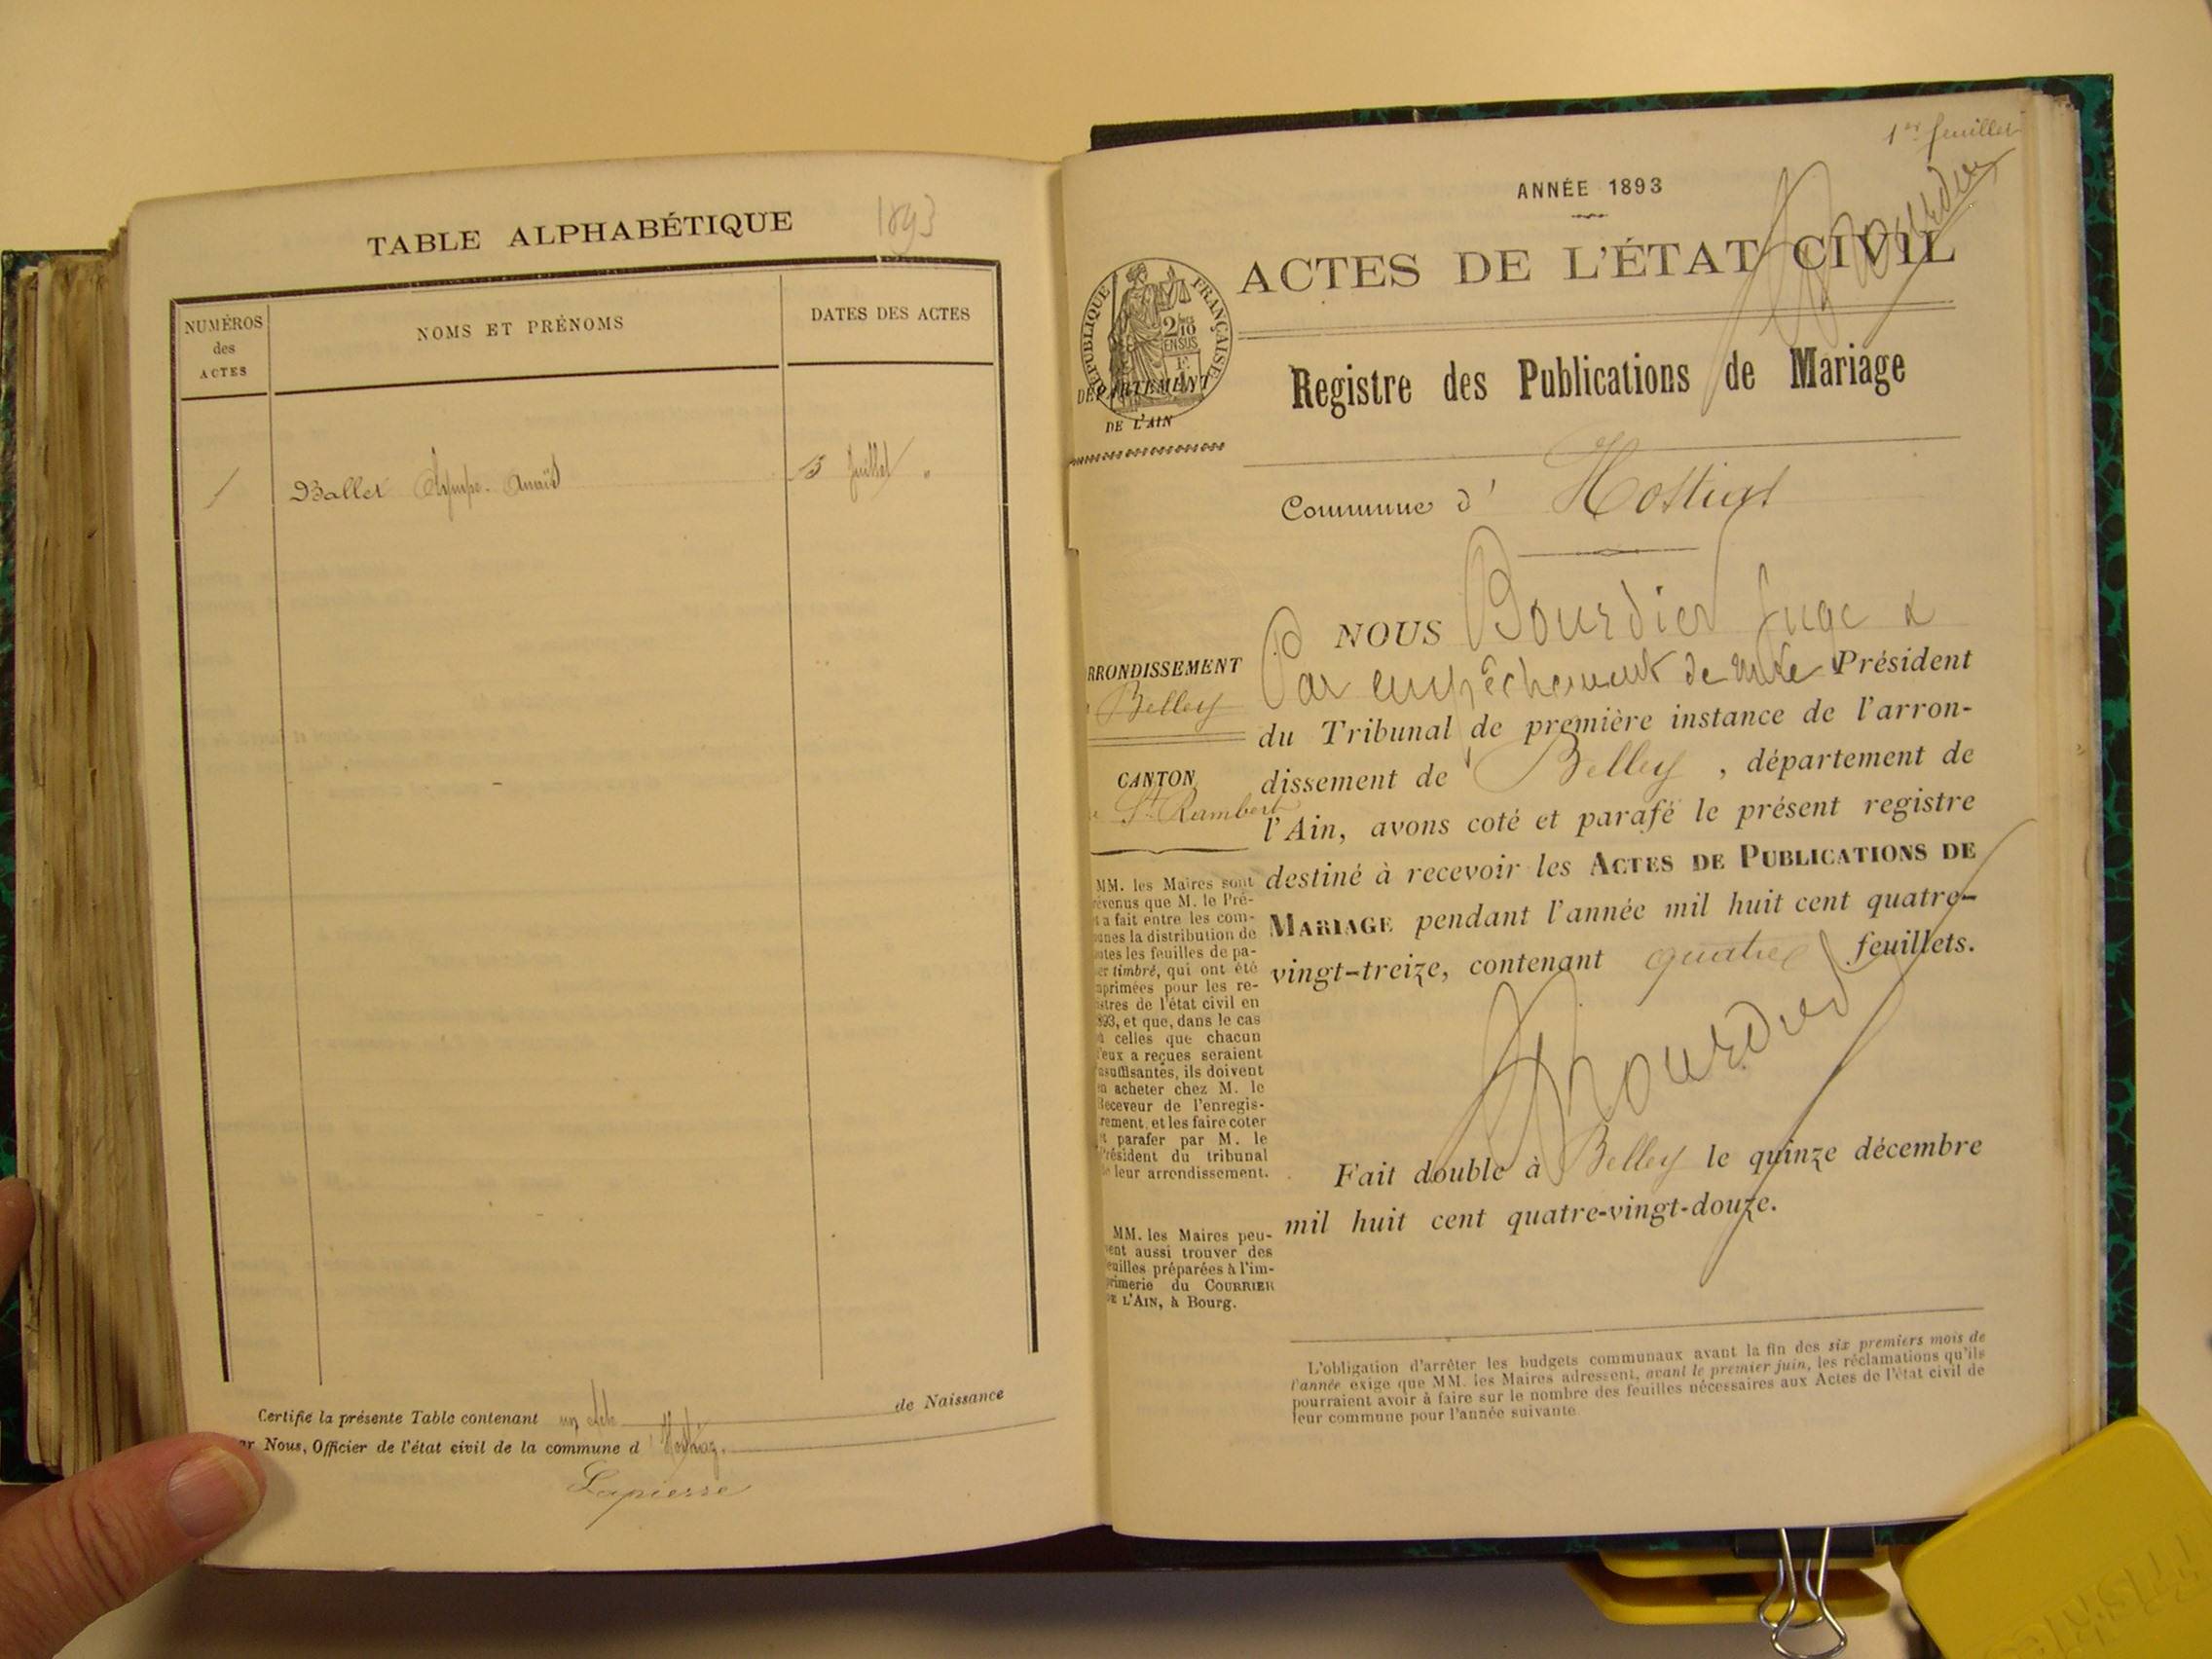 TABLE ALPHABÉTIQUE
1893
NUMÉROS
des
ACTES
NOMS ET PRÉNOMS
DATES DES ACTES
1 Ballet Olympe Anaïs 13 Juillet "
Certifié la présente Table contenant un acte de Naissance
ar Nous, Officier de l'état civil de la commune d'Hostiaz.
Lapierre
1er feuillet
Bourdier
ANNÉE 1893
ACTES DE L'ÉTAT CIVIL
RÉPUBLIQUE FRANÇAISE
2/10
EN SUS
DÉPARTEMENT
DE L'AIN
Registre des Publications de Mariage
Commune d' Hostiaz
RRONDISSEMENT
Belley
CANTON
St Rambert
MM. les Maires sont
révenus que M. le Pré-
t a fait entre les com-
unes la distribution de
utes les feuilles de pa-
er timbré, qui ont été
mprimées pour les re-
istres de l'état civil en
893, et que, dans le cas
ù celles que chacun
'eux a reçues seraient
nsuffisantes, ils doivent
en acheter chez M. le
Receveur de l'enregis-
rement, et les faire coter
et parafer par M. le
Président du tribunal
de leur arrondissement.
MM. les Maires peu-
vent aussi trouver des
euilles préparées à l'im-
primerie du COURRIER
DE L'AIN, à Bourg.
NOUS Bourdier Juge
Par empêchement de Président
du Tribunal de première instance de l'arron-
dissement de Belley, département de
l'Ain, avons coté et parafé le présent registre
destiné à recevoir les ACTES DE PUBLICATIONS DE
MARIAGE pendant l'année mil huit cent quatre-
vingt-treize, contenant quatre feuillets.
Bourdier
Fait double à Belley le quinze décembre
mil huit cent quatre-vingt-douze.
L'obligation d'arrêter les budgets communaux avant la fin des six premiers mois de
l'année exige que MM. les Maires adressent, avant le premier juin, les réclamations qu'ils
pourraient avoir à faire sur le nombre des feuilles nécessaires aux Actes de l'état civil de
leur commune pour l'année suivante